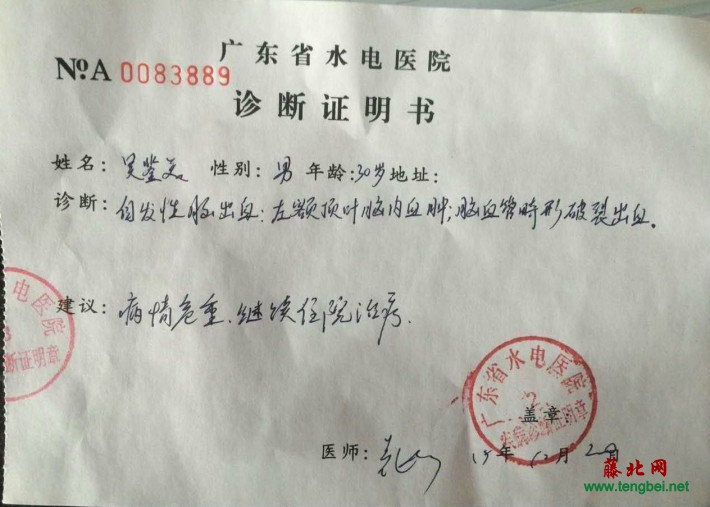 广东省水电医院
№A 0083889
诊断证明书
姓名: 吴 性别: 男 年龄: 30岁 地址:
诊断: 自发性脑出血; 左颞顶叶脑内血肿; 脑血管畸形破裂出血。
建议: 病情危重、继续住院治疗.
电医院
断证明章
广东省水电医院
2
疾病诊断证明章
盖章:
医师: 15年12月29日
藤北网
www.tengbei.net